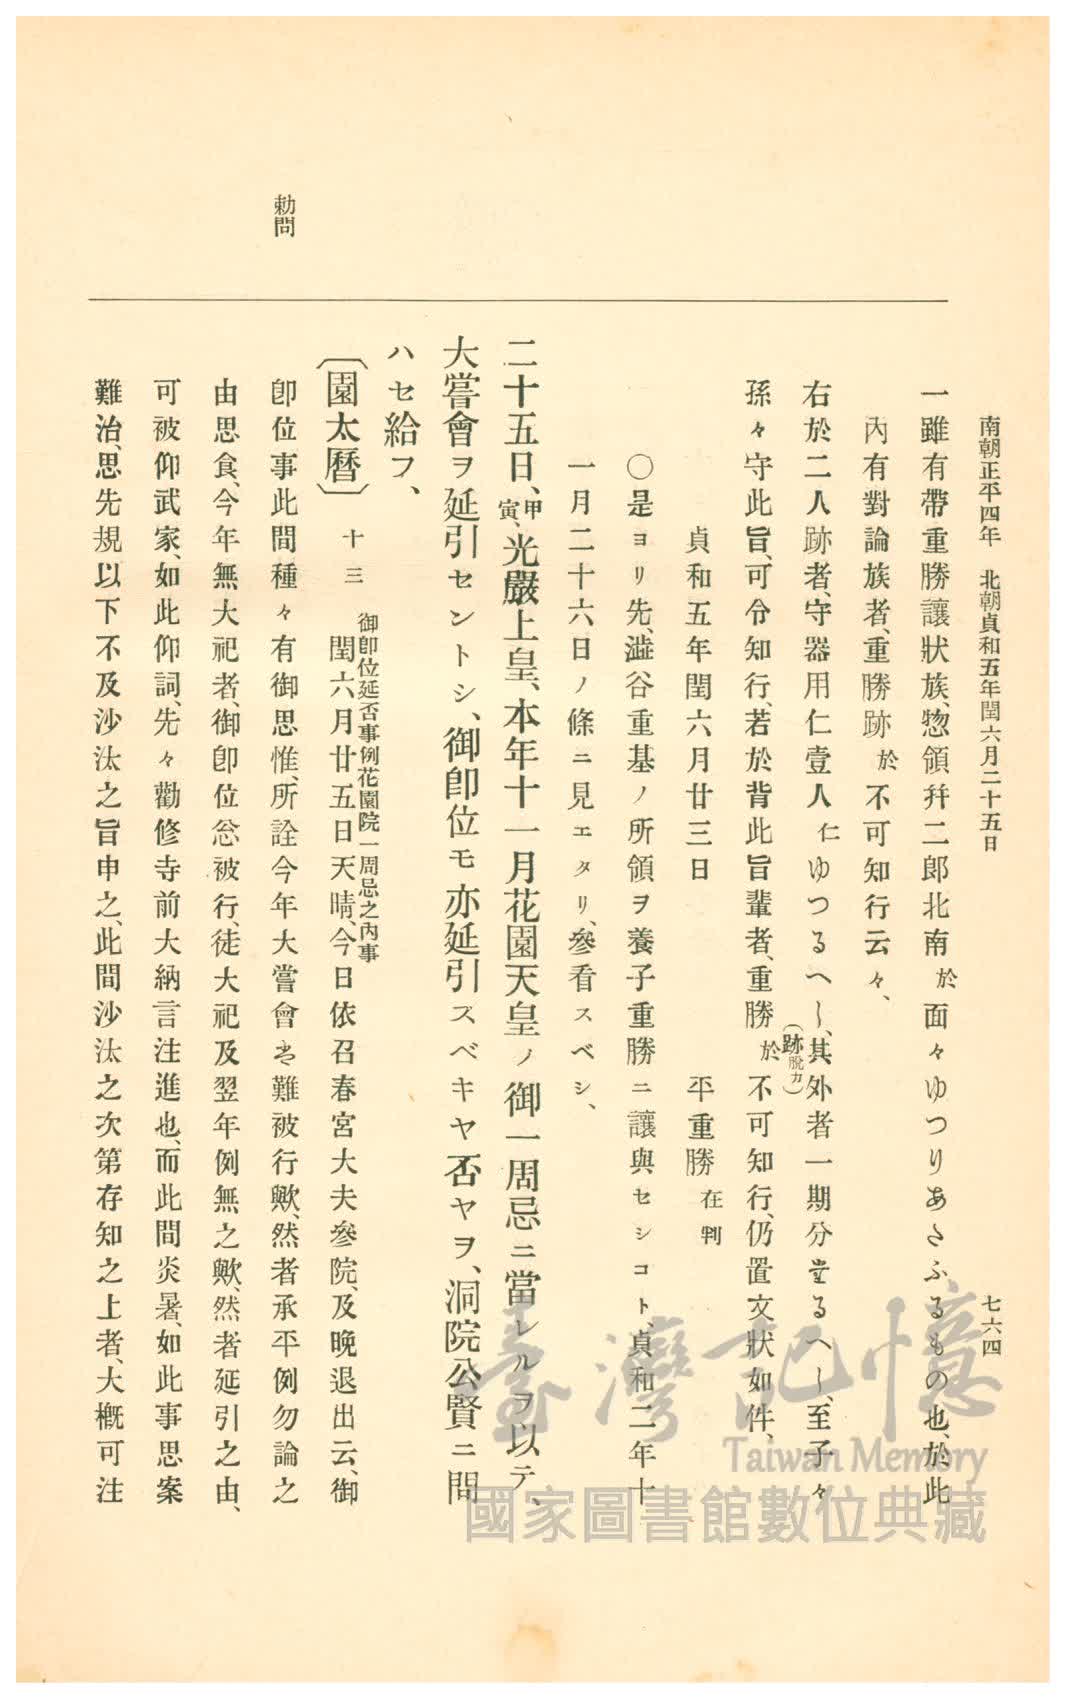 南朝正平四年 北朝貞和五年閏六月二十五日 七六四
一雖有帶重勝讓狀族、惣領幷二郎北南於面々ゆつりあたふるもの也、於此
內有對論族者、重勝跡於不可知行云々、
右於二人跡者、守器用仁壹人仁ゆつるへし、其外者一期分たるへし、至子々
孫々守此旨、可令知行、若於背此旨輩者、重勝(跡脫カ)於不可知行、仍置文狀如件、
貞和五年閏六月廿三日 平重勝在判
○是ヨリ先、澁谷重基ノ所領ヲ養子重勝ニ讓與セシコト、貞和二年十
一月二十六日ノ條ニ見エタリ、參看スベシ、
二十五日、甲寅、光嚴上皇、本年十一月花園天皇ノ御一周忌ニ當レルヲ以テ、
大嘗會ヲ延引セントシ、御卽位モ亦延引スベキヤ否ヤヲ、洞院公賢ニ問
ハセ給フ、
〔園太曆〕 十三 御卽位延否事例花園院一周忌之內事
閏六月廿五日天晴、今日依召春宮大夫參院、及晚退出云、御
勅問
卽位事此間種々有御思惟、所詮今年大嘗會者難被行歟、然者承平例勿論之
由思食、今年無大祀者、御卽位忩被行、徒大祀及翌年例無之歟、然者延引之由、
可被仰武家、如此仰詞、先々勸修寺前大納言注進也、而此間炎暑、如此事思案
難治、思先規以下不及沙汰之旨申之、此間沙汰之次第存知之上者、大槪可注
臺灣記憶
Taiwan Memory
國家圖書館數位典藏